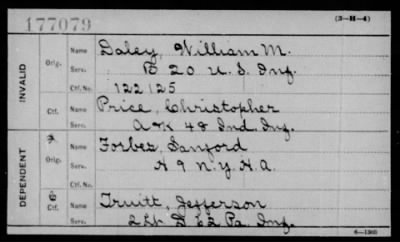 177079
(3-H-4)
INVALID
Orig.
Name Daley, William M.
Serv. B 20 U. S. Inf.
Ctf. No. 122125
Ctf.
Name Price, Christopher
Serv. A & K 48 Ind. Inf.
DEPENDENT
Orig.
Name Forbes, Sanford
Serv. H 9 N.Y. H.A.
Ctf. No.
Ctf.
Name Truitt, Jefferson
Serv. 2 Lt D 62 Pa. Inf.
6-1308